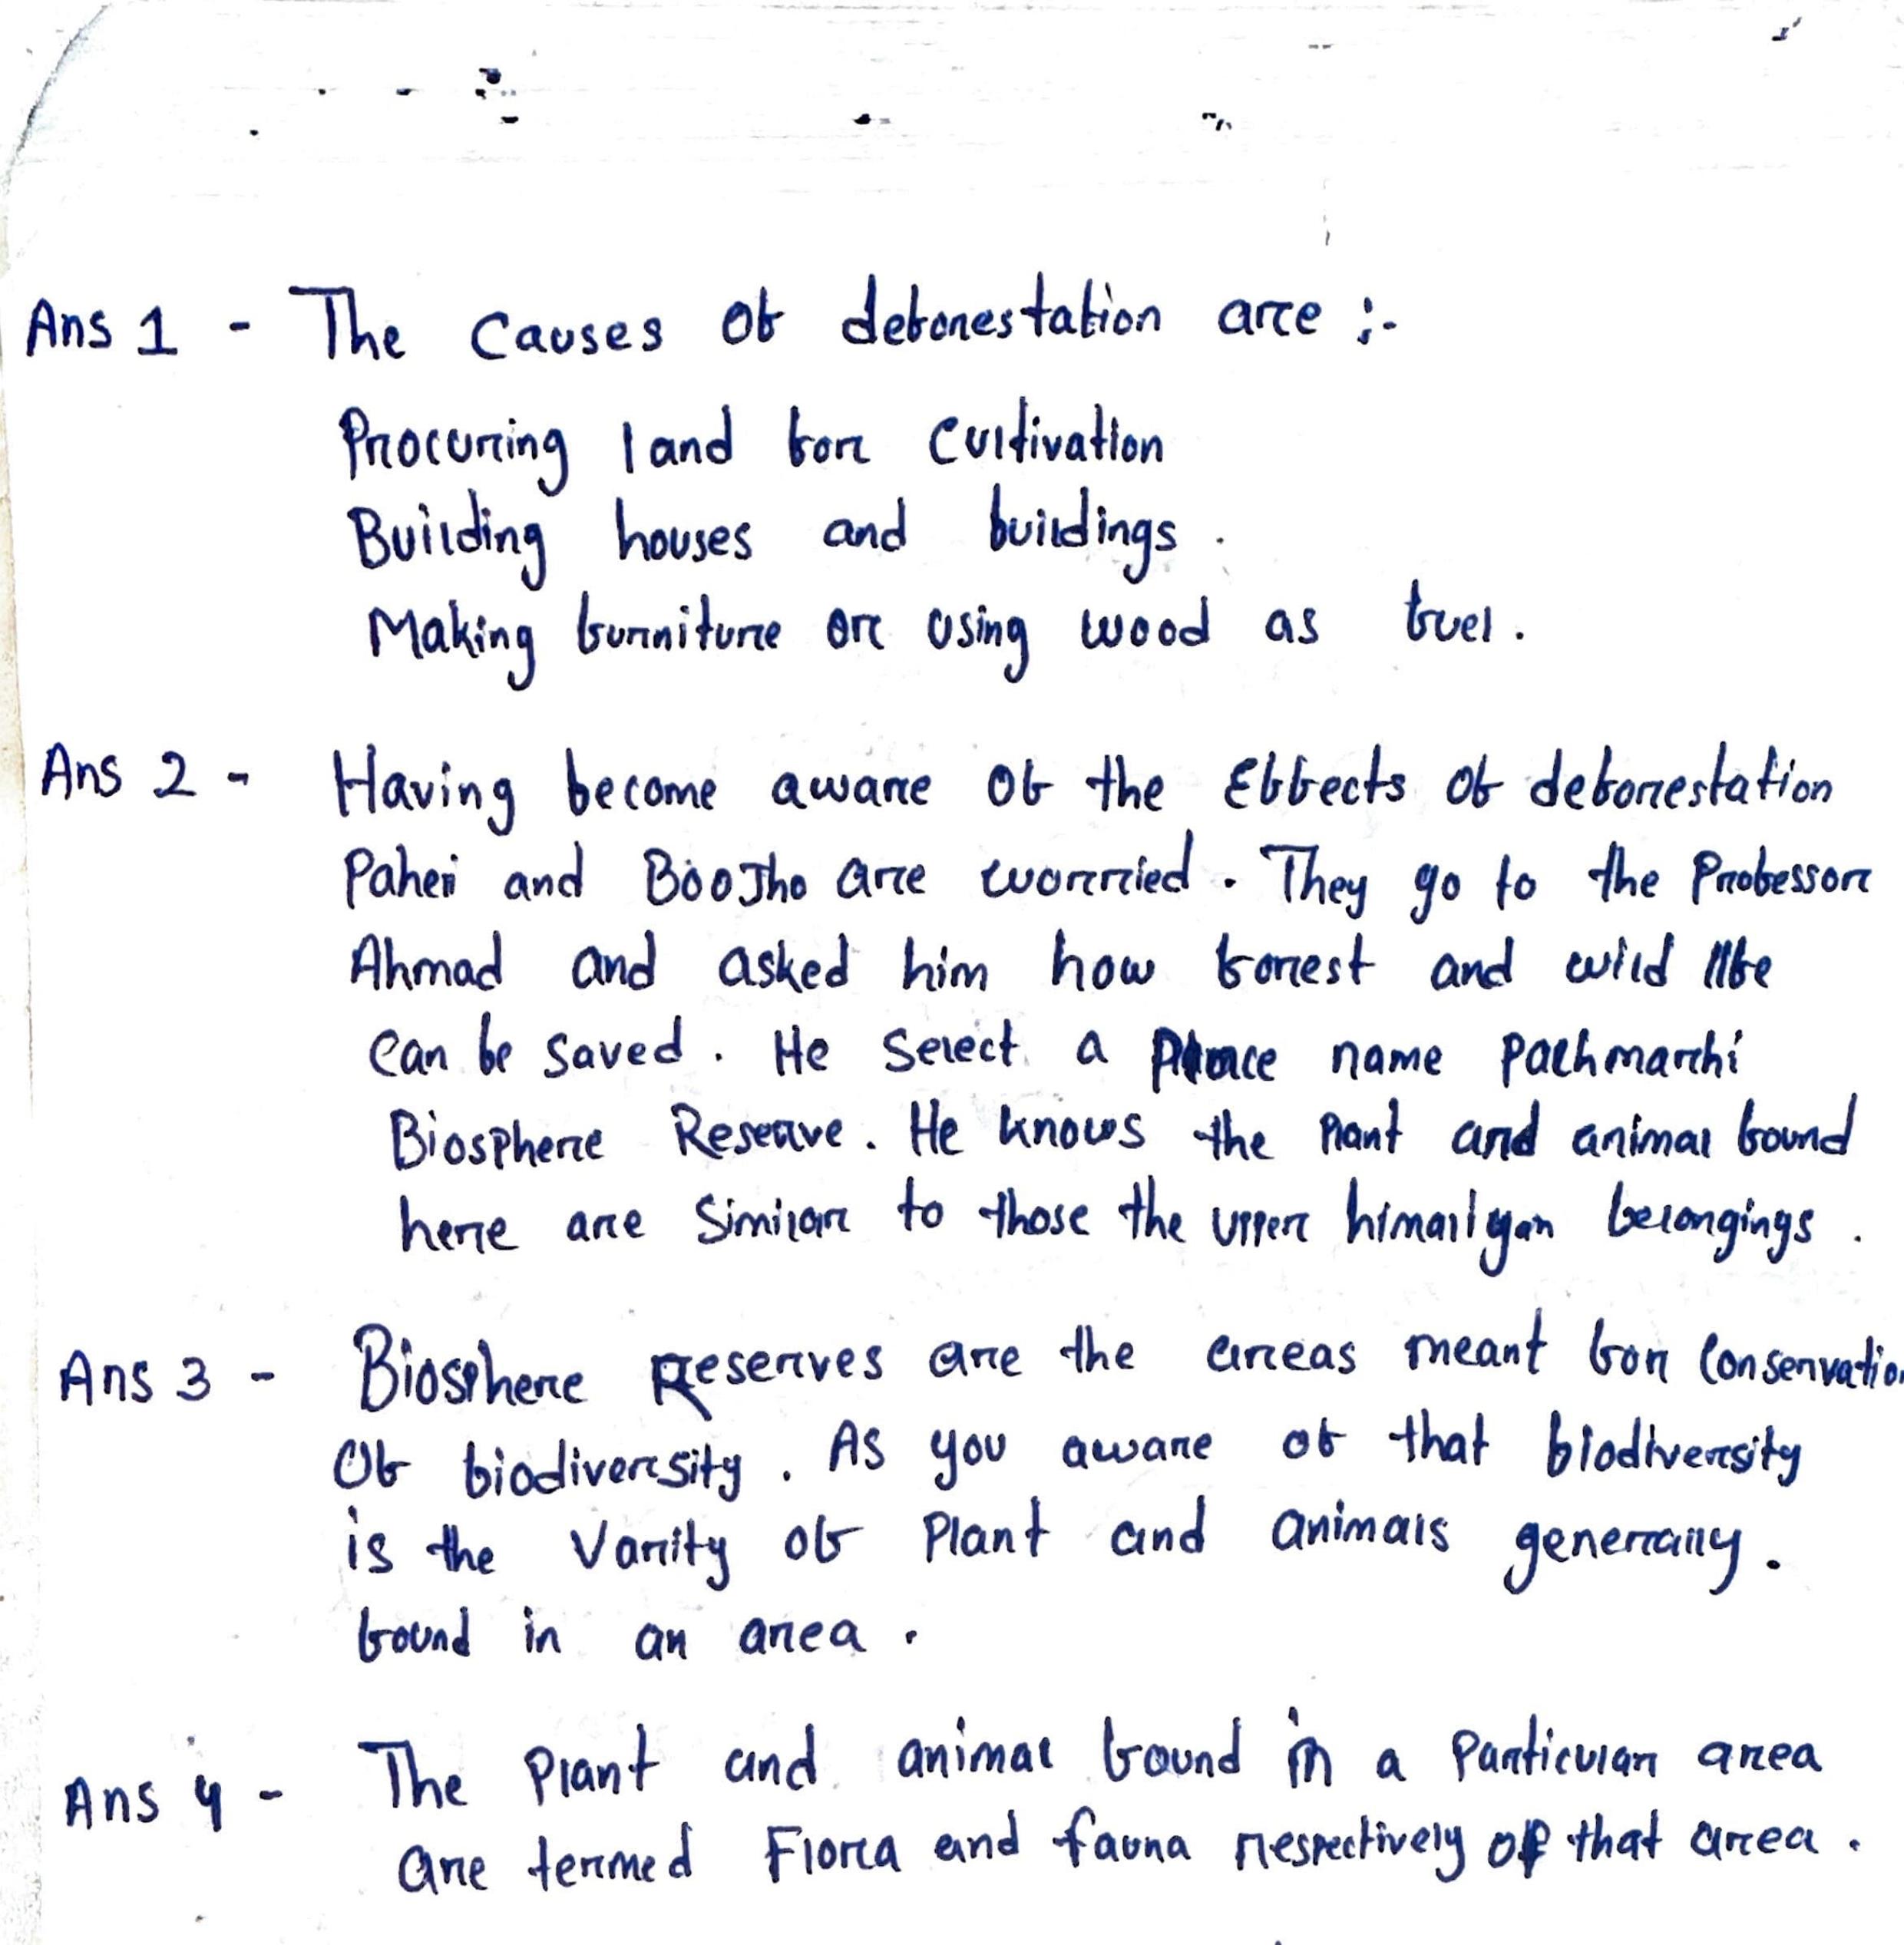 Ans 1 - The Causes of deforestation are :-
Procuring land for cultivation
Building houses and buildings .
Making furniture or using wood as fuel .
Ans 2 - Having become aware of the Effects of deforestation
Paheli and BooJho are worried . They go to the Professor
Ahmad and asked him how forest and wild life
can be saved . He select a place name Pachmarhi
Biosphere Reserve . He knows the Plant and animal found
here are similar to those the upper himailyan belongings .
Ans 3 - Biosphere Reserves are the areas meant for Conservation
Of biodiversity . As you aware of that biodiversity
is the Varity of Plant and animals generally .
found in an area .
Ans 4 - The Plant and animal found in a Particular area
are termed Flora and fauna respectively of that area .